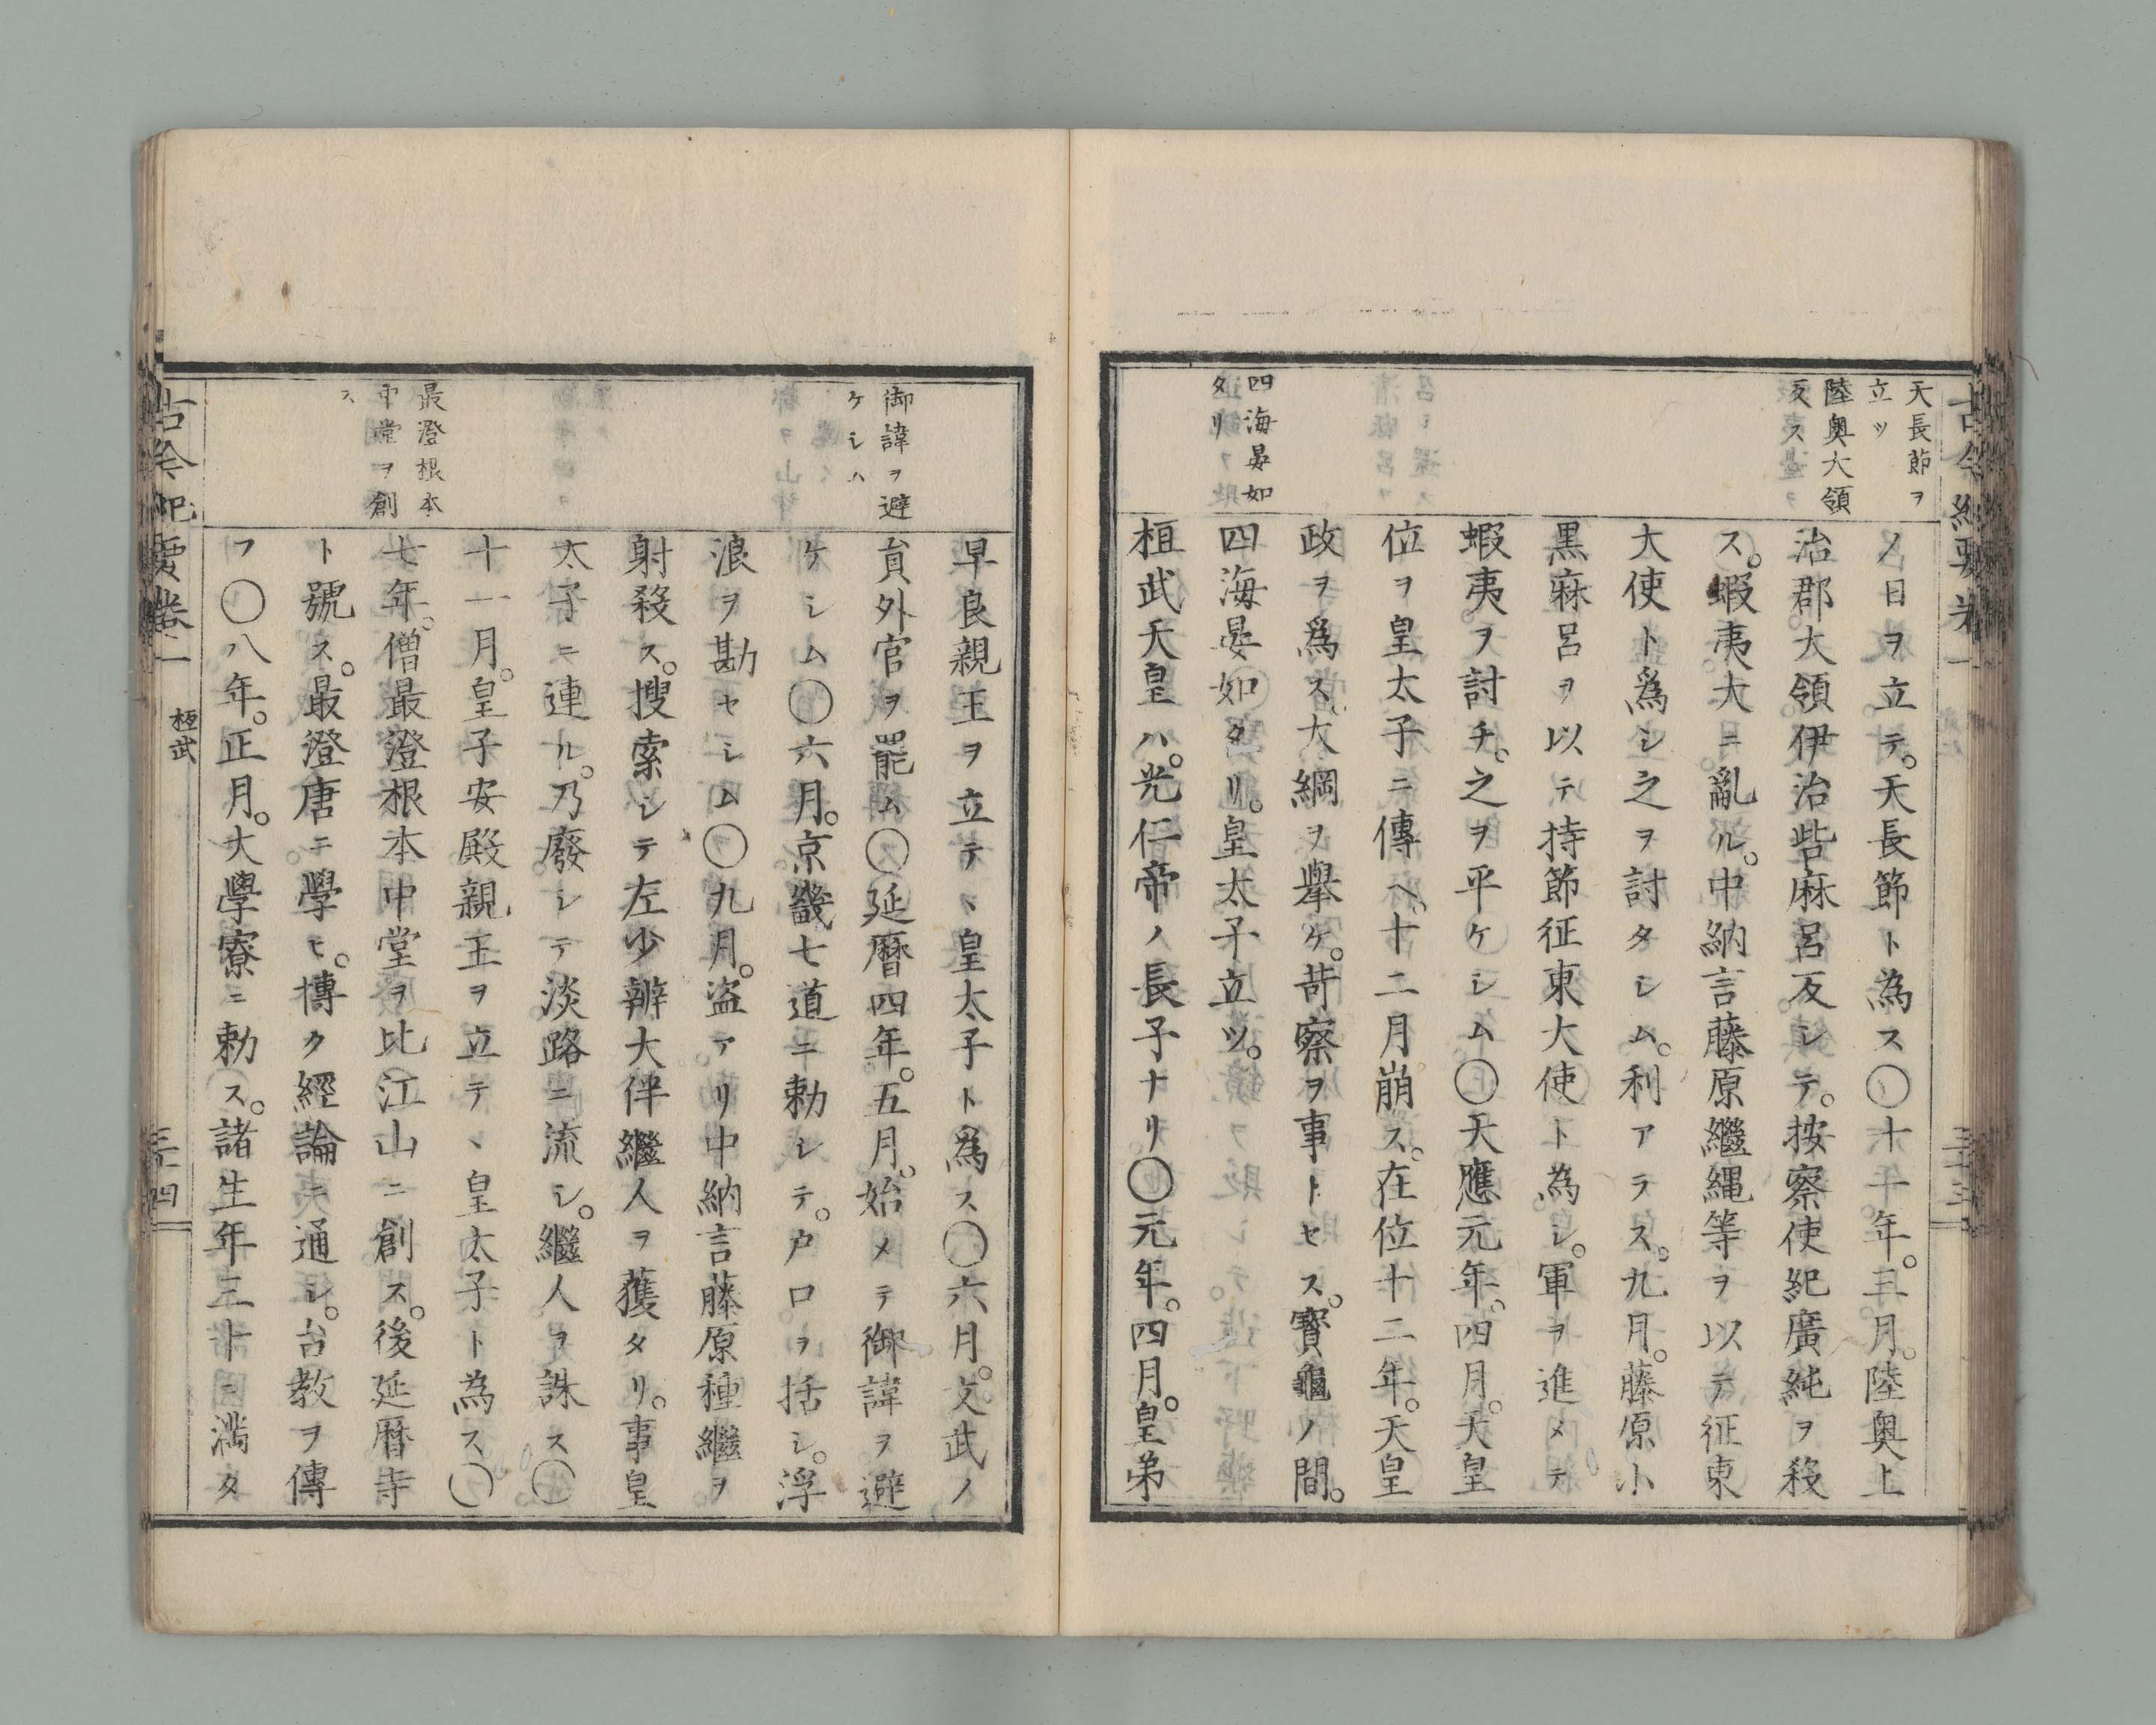 天長節ヲ
立ツ
陸奥大領
反ス
四海晏如
タリ
ノ日ヲ立テ。天長節ト為ス〇十一年。三月。陸奥上
治郡大領伊治呰麻呂反シテ。按察使紀廣純ヲ殺
ス。蝦夷大ニ亂ル。中納言藤原繼縄等ヲ以テ征東
大使ト爲シ之ヲ討タシム。利アラス。九月。藤原小
黒麻呂ヲ以テ持節征東大使ト為シ。軍ヲ進メテ
蝦夷ヲ討チ。之ヲ平ケシム〇天應元年。四月。天皇
位ヲ皇太子ニ傳ヘ。十二月崩ス。在位十二年。天皇
政ヲ爲ス。大綱ヲ擧ケ。苛察ヲ事トセス。寳龜ノ間。
四海晏如タリ。皇太子立ツ。
桓武天皇ハ。光仁帝ノ長子ナリ〇元年。四月。皇弟
御諱ヲ避
ケシム
最澄根本
中堂ヲ創
ス
早良親王ヲ立テヽ皇太子ト為ス〇六月。文武ノ
貟外官ヲ罷ム〇延暦四年。五月。始メテ御諱ヲ避
ケシム〇六月。京畿七道ニ勅シテ。戸口ヲ括シ。浮
浪ヲ勘セシム〇九月。盗アリ中納言藤原種繼ヲ
射殺ス。搜索シテ左少辨大伴繼人ヲ獲タリ。事皇
太子ニ連ル。乃廢シテ淡路ニ流シ。繼人ヲ誅ス〇
十一月。皇子安殿親王ヲ立テヽ皇太子ト為ス〇
七年。僧最澄根本中堂ヲ比江山ニ創ス。後延暦寺
ト號ス。最澄唐ニ學ヒ。博ク經論ニ通シ。台教ヲ傳
フ〇八年。正月。大學寮ニ勅ス。諸生年三十ニ満タ
古今紀要卷一
桓武
三十四